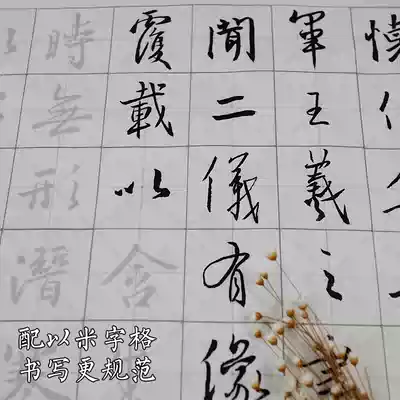 軍王羲之
聞二儀有像
覆載以含
時無形潛
配以米字格
书写更规范